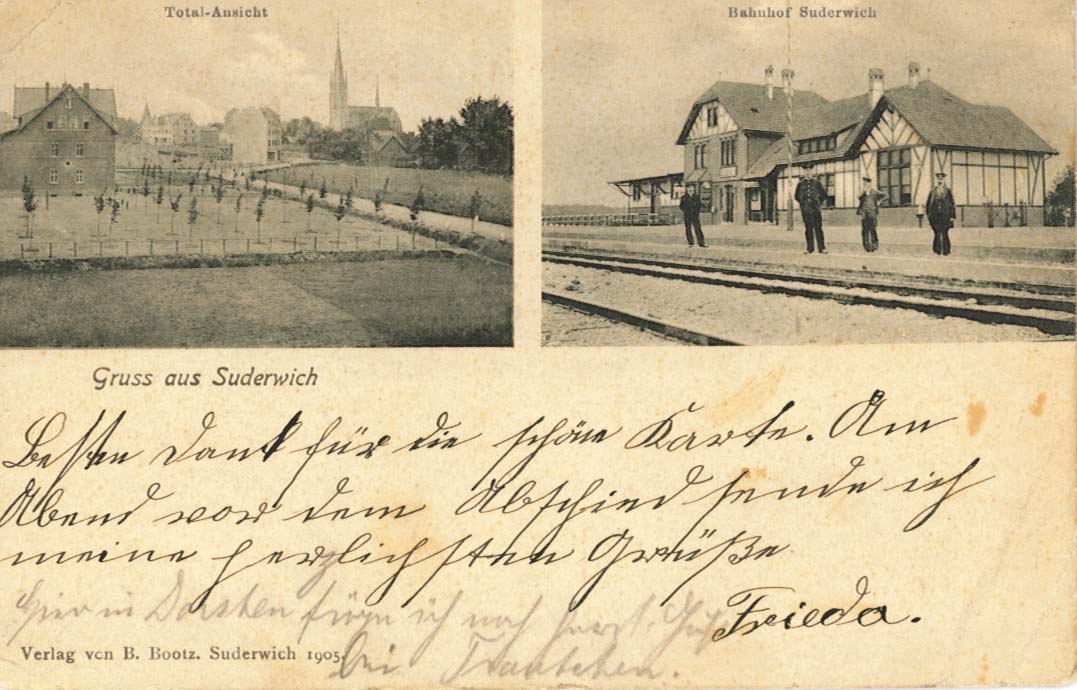 Total-Ansicht
Bahnhof Suderwich
Gruss aus Suderwich
Besten Dank für die schöne Karte. Am
Abend vor dem Abschied sende ich
meine herzlichsten Grüße
Frieda.
Hier in Dorsten füge ich noch herzl.
bei
Verlag von B. Bootz. Suderwich 1905.